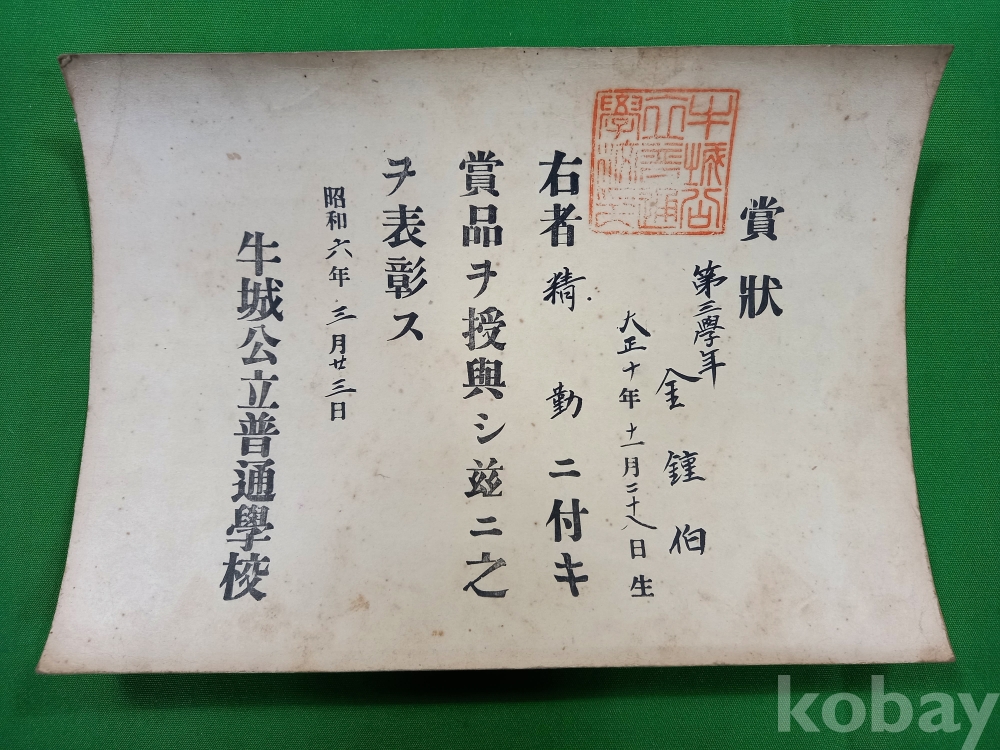 賞狀
第三學年
金鍾伯
大正十年十一月二十八日生
右者精勤ニ付キ
賞品ヲ授與シ玆ニ之
ヲ表彰ス
昭和六年三月廿三日
牛城公立普通學校
牛城公
立普通
學校
kobay